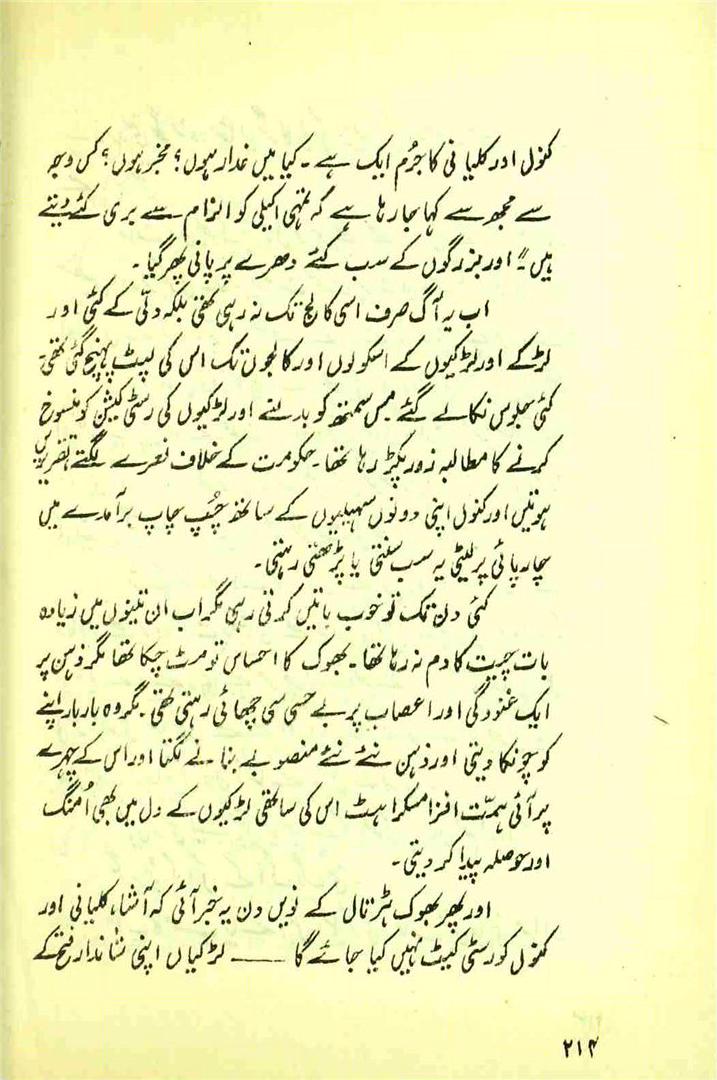 کنول اور کلیانی کا جرُم ایک ہے۔ کیا میں غدار ہوں؟ مخبر ہوں؟ کس وجہ
سے مجھ سے کہا جا رہا ہے کہ تمہی اکیلی کو الزام سے بری کئے دیتے
ہیں"! اور بزرگوں کے سب کئے دھرے پر پانی پھر گیا۔
اب یہ آگ صرف اسی کالج تک نہ رہی تھی بلکہ دلّی کے کئی اور
لڑکے اور لڑکیوں کے اسکولوں اور کالجوں تک اس کی لپٹ پہنچ گئی تھی۔
کئی جلوس نکالے گئے مِیس سمتھ کو بدلنے اور لڑکیوں کی رسٹی کیشن کو منسوخ
کرنے کا مطالبہ زور پکڑ رہا تھا۔ حکومت کے خلاف نعرے لگتے تقریریں
ہوتیں اور کنول اپنی دونوں سہیلیوں کے ساتھ چُپ چاپ برآمدے میں
چارپائی پر لیٹی یہ سب سنتی یا پڑھتی رہتی۔
کئی دن تک تو خوب باتیں کرتی رہی مگر اب ان تینوں میں زیادہ
بات چیت کا دم نہ رہا تھا۔ بھوک کا احساس تو مٹ چکا تھا مگر ذہن پر
ایک غنودگی اور اعصاب پر بے حسی سی چھائی رہتی تھی۔ مگر وہ بار بار اپنے
کو چونکا دیتی اور ذہن نئے نئے منصوبے بنانے لگتا اور اس کے چہرے
پر آئی ہمّت افزا مسکراہٹ اس کی ساتھی لڑکیوں کے دل میں بھی اُمنگ
اور حوصلہ پیدا کر دیتی۔
اور پھر بھوک ہڑتال کے نویں دن یہ خبر آئی کہ آشا، کلیانی اور
کنول کو رسٹی کیٹ نہیں کیا جائے گا —— لڑکیاں اپنی شاندار فتح کے
۲۱۴